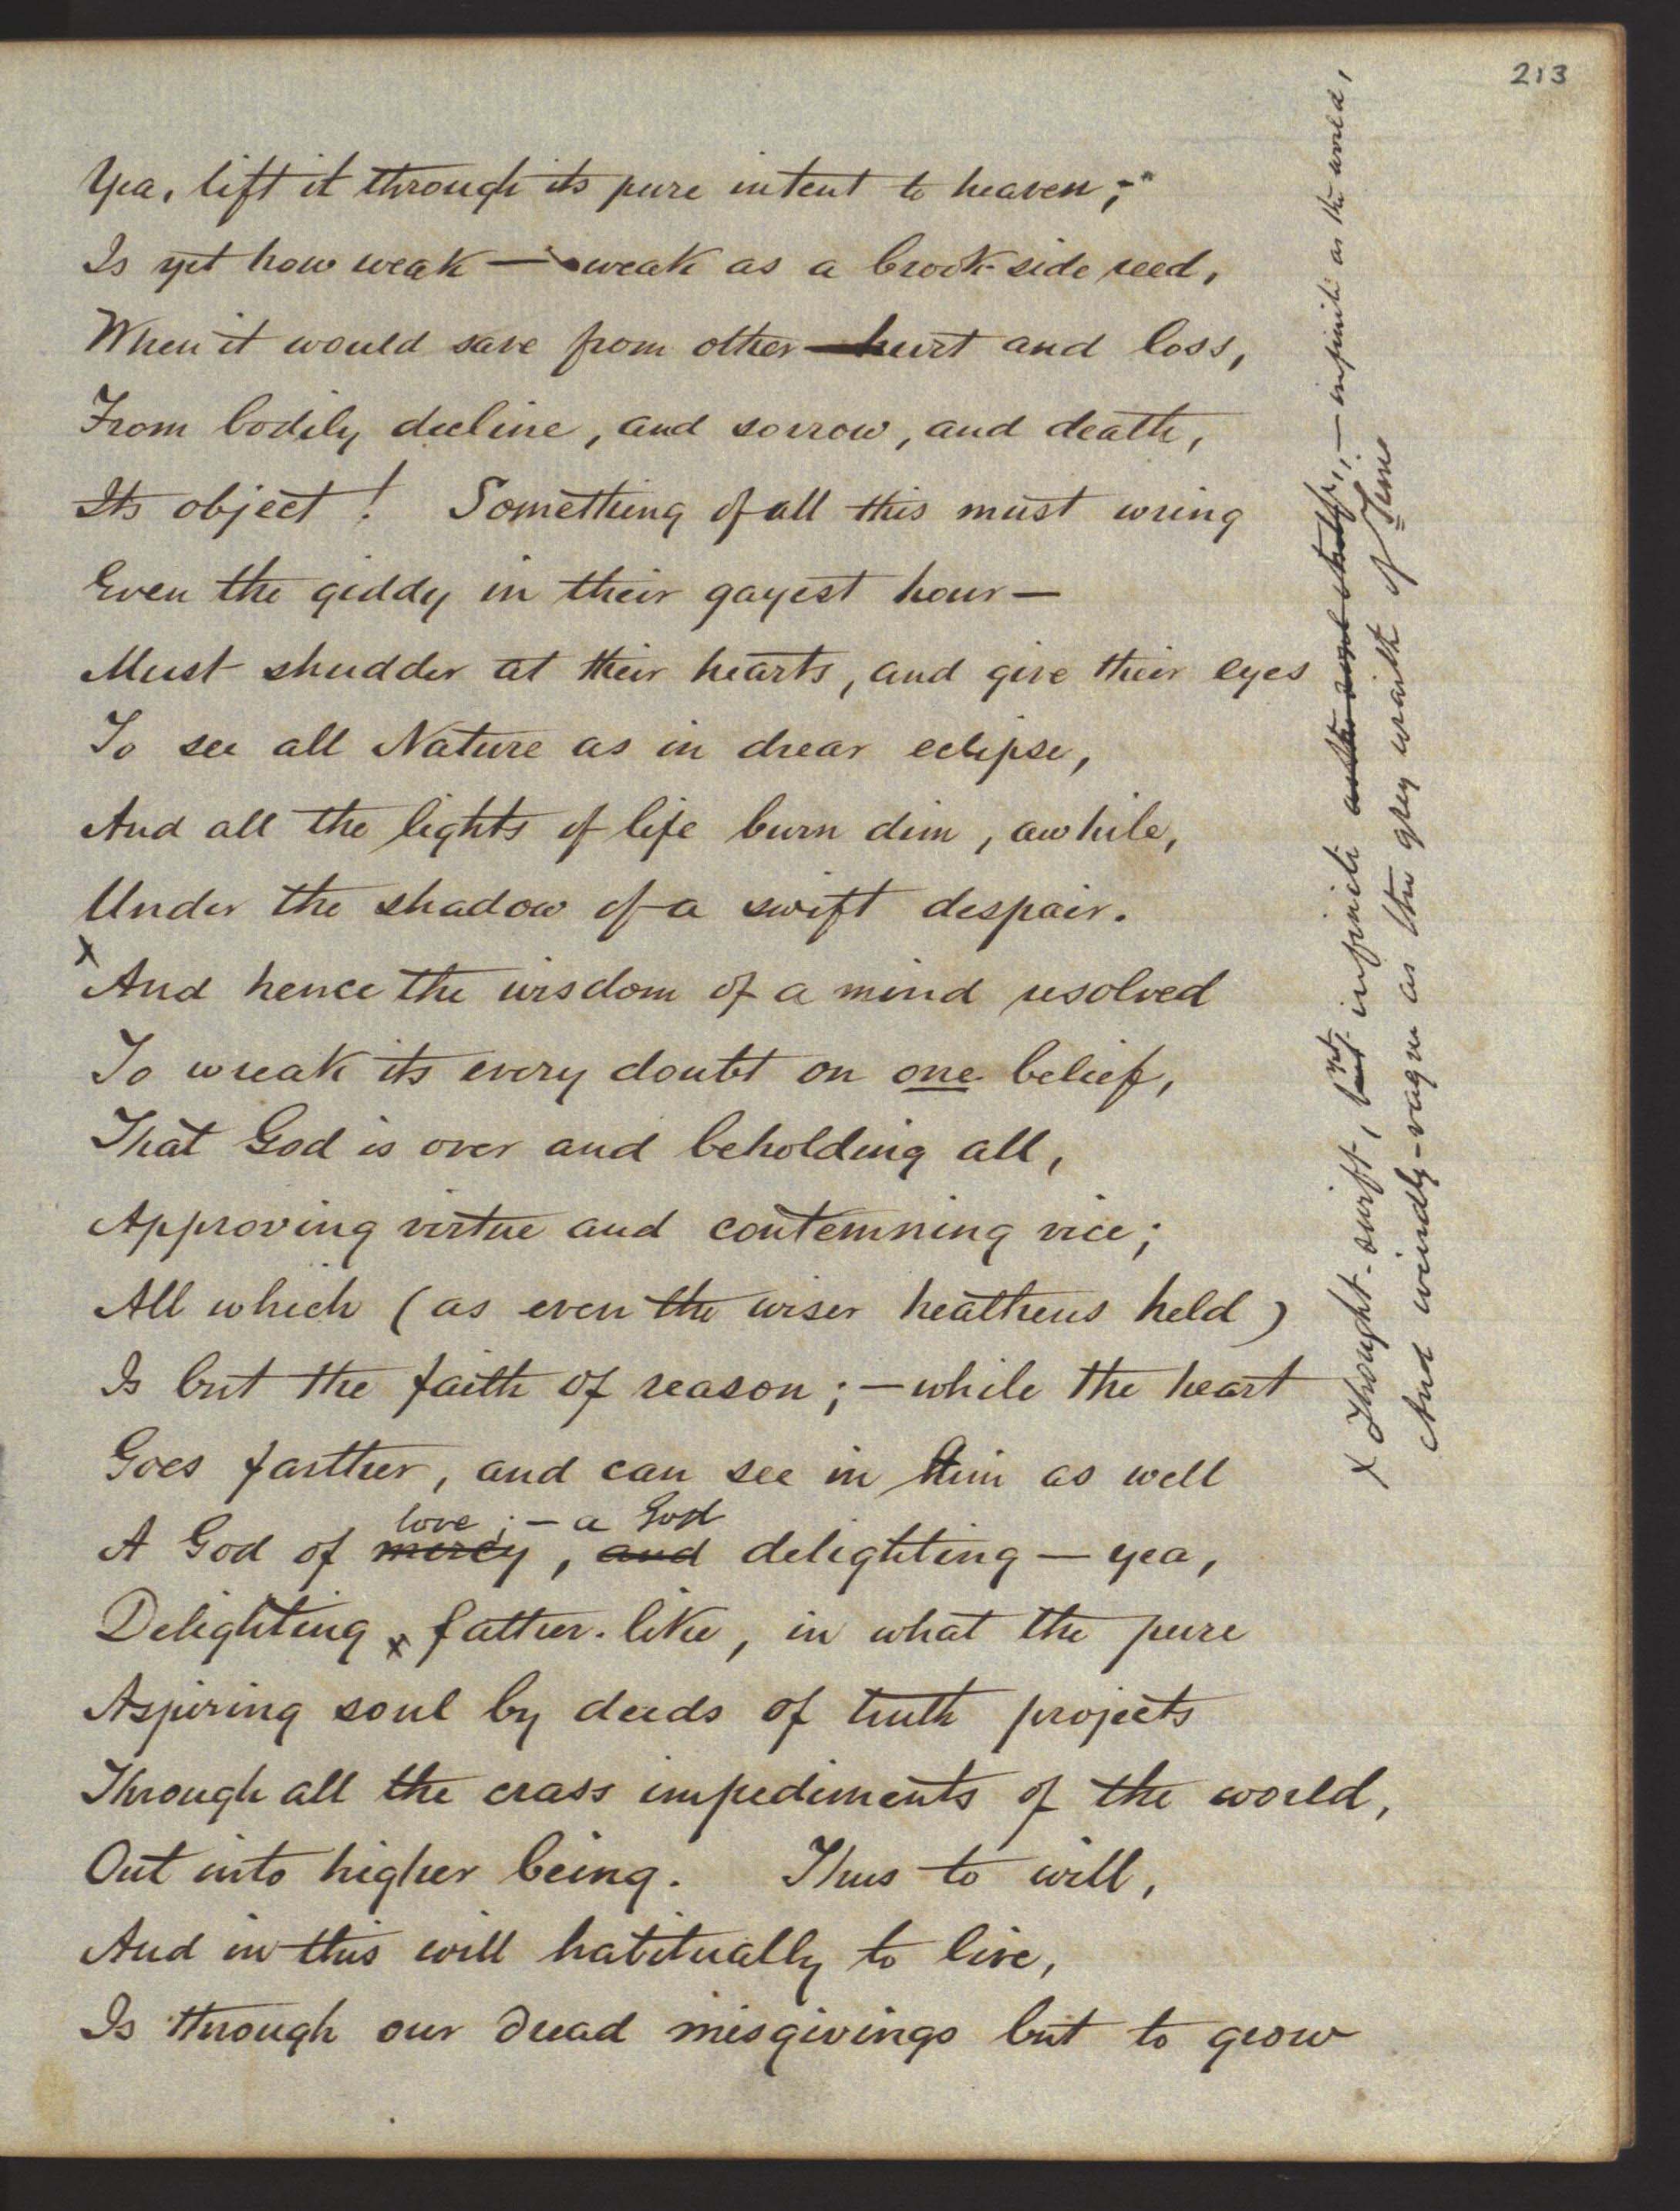 213
Yea, lift it through its pure intent to heaven;
Is yet how weak — weak as a brook-side reed,
When it would save from other hurt and loss,
From bodily decline, and sorrow, and death,
Its object! Something of all this must wring
Even the giddy in their gayest hour —
Must shudder at their hearts, and give their eyes
To see all Nature as in drear eclipse,
And all the lights of life burn dim, awhile,
Under the shadow of a swift despair.
x
And hence the wisdom of a mind resolved
To wreak its every doubt on one belief,
That God is over and beholding all,
Approving virtue and contemning vice;
All which (as even the wiser heathens held)
Is but the faith of reason; — while the heart
Goes farther, and can see in Him as well
love; — a God
A God of mercy, and delighting — yea,
Delighting x father-like, in what the pure
Aspiring soul by deeds of truth projects
Through all the crass impediments of the world,
Out into higher being. Thus to will,
And in this will habitually to live,
Is through our dread misgivings but to grow
yet
x Thought-swift, but infinite as the — infinite as the world,
And windly-vague as the grey wraith of Time